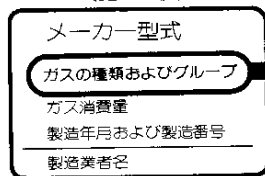 メーカー型式
ガスの種類およびグループ
ガス消費量
製造年月および製造番号
製造業者名